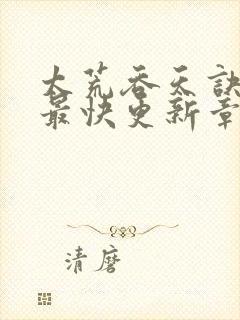 大荒吞天訣
最快更新章
清磨